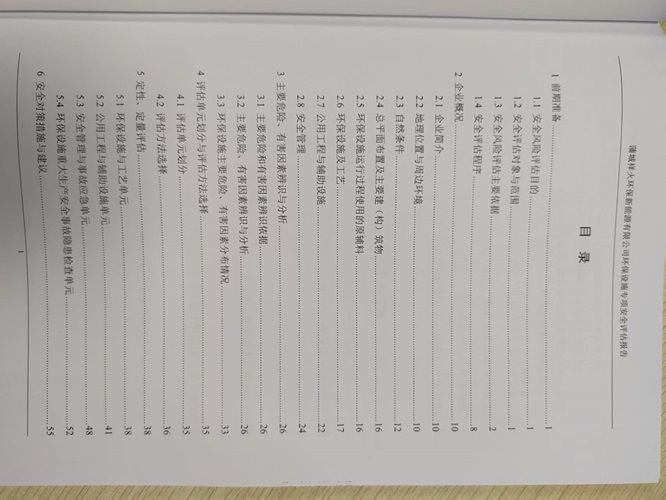 蒲城祥火环保新能源有限公司环保设施专项安全评估报告
目 录
1 前期准备..........1
1.1 安全风险评估目的..........1
1.2 安全评估对象与范围..........1
1.3 安全风险评估主要依据..........2
1.4 安全评估程序..........8
2 企业概况..........10
2.1 企业简介..........10
2.2 地理位置与周边环境..........10
2.3 自然条件..........12
2.4 总平面布置及主要建（构）筑物..........16
2.5 环保设施运行过程使用的原辅料..........16
2.6 环保设施及工艺..........17
2.7 公用工程与辅助设施..........22
2.8 安全管理..........24
3 主要危险、有害因素辨识与分析..........26
3.1 主要危险和有害因素辨识依据..........26
3.2 主要危险、有害因素辨识与分析..........26
3.3 环保设施主要危险、有害因素分布情况..........33
4 评估单元划分与评估方法选择..........35
4.1 评估单元划分..........35
4.2 评估方法选择..........36
5 定性、定量评估..........38
5.1 环保设施与工艺单元..........38
5.2 公用工程与辅助设施单元..........41
5.3 安全管理与事故应急单元..........48
5.4 环保设施重大生产安全事故隐患检查单元..........52
6 安全对策措施与建议..........55
1